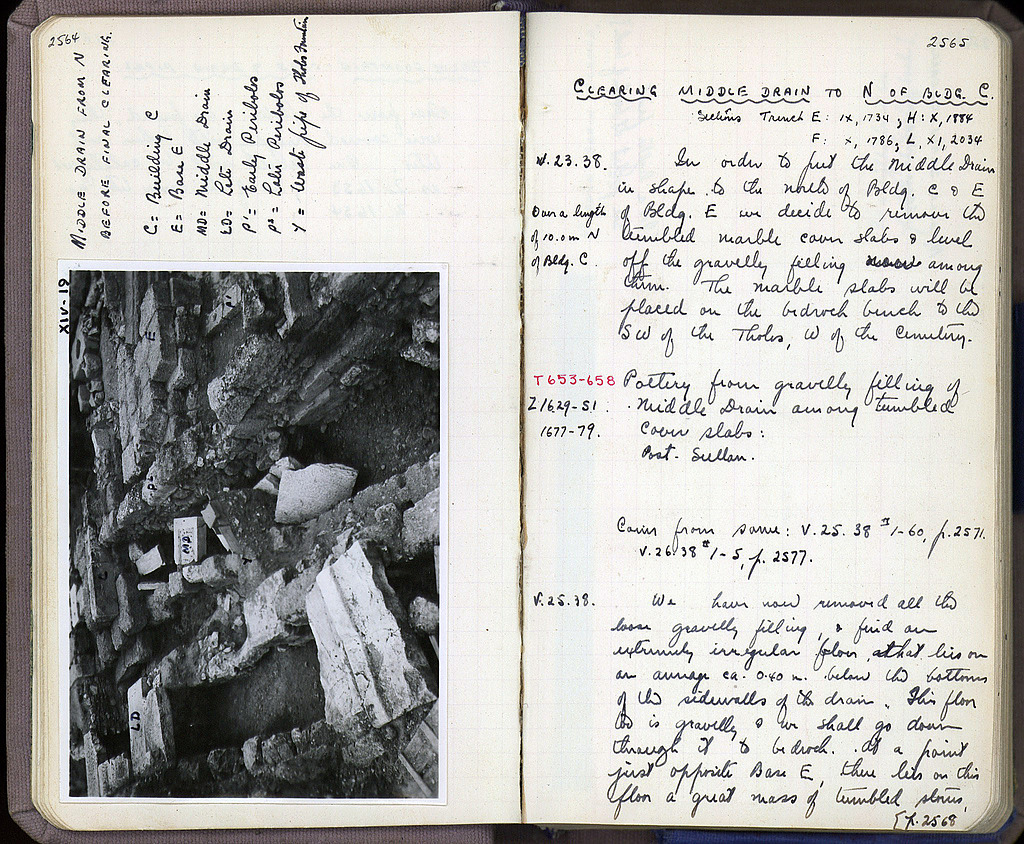 2564
MIDDLE DRAIN FROM N
BEFORE FINAL CLEARING.
C = Building C
E = Base E
MD = Middle Drain
LD = Late Drain
P' = Early Peribolos
P² = Late Peribolos
Y = Waste pipe of Tholos Fountain
XIV-19
E
P'
P²
MD
C
Y
LD
2565
CLEARING MIDDLE DRAIN TO N OF BLDG. C.
Sections Trench E: IX, 1734, H: X, 1884
F: X, 1786, L, XI, 2034
V. 23.38. In order to put the Middle Drain
in shape to the north of Bldg. C & E
Over a length of Bldg. E we decide to remove the
of 10.0 m N tumbled marble cover slabs & level
of Bldg. C. off the gravelly filling among
them. The marble slabs will be
placed on the bedrock bench to the
SW of the Tholos, W of the Cemetery.
T 653-658 Pottery from gravelly filling of
Z 1629-51. Middle Drain among tumbled
1677-79. Cover slabs:
Post-Sullan.
Coins from same: V. 25. 38 #1-60, p. 2571.
V. 26.38 #1-5, p. 2577.
V. 25.38. We have now removed all the
loose gravelly filling, & find an
extremely irregular floor that lies on
an average ca. 0.40 m. below the bottoms
of the sidewalls of the drain. This floor
too is gravelly & we shall go down
through it to bedrock. At a point
just opposite Base E, there lies on this
floor a great mass of tumbled stones,
{p. 2568